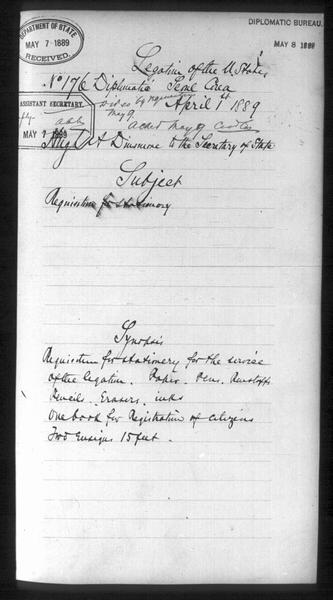 DEPARTMENT OF STATE
MAY 7 1889
RECEIVED.
DIPLOMATIC BUREAU.
MAY 8 1889
Legation of the U. States
No 176 Diplomatic Seoul Corea
April 1st 1889
ASSISTANT SECRETARY.
MAY 1889
May 9
acted May 9
Hugh A Dinsmore to the Secretary of State
Subject
Requisition for stationery
Synopsis
Requisition for stationery for the service
of the legation. Paper. Pens.
Pencils. Erasers. inks
One book for Registration of citizens
Two Ensigns 15 feet.